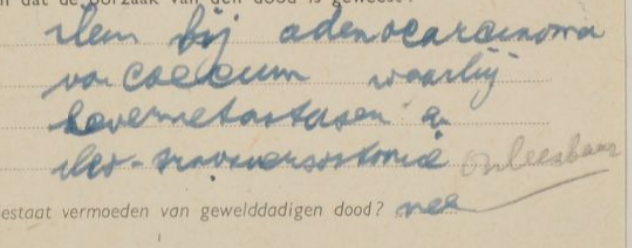 dat de oorzaak van den dood is geweest?
Ileus bij adenocarcinoma
van coecum waarbij
levermetastasen en
ileo-transversostomie onleesbaar
estaat vermoeden van gewelddadigen dood? nee